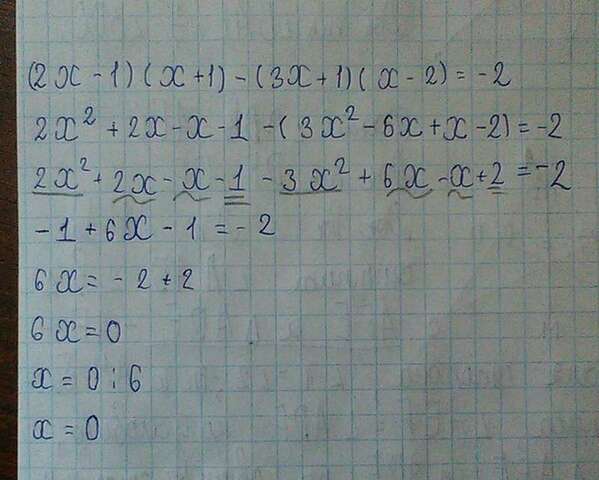 (2x - 1)(x + 1) - (3x + 1)(x - 2) = -2
2x² + 2x - x - 1 - (3x² - 6x + x - 2) = -2
2x² + 2x - x - 1 - 3x² + 6x - x + 2 = -2
- 1 + 6x - 1 = - 2
6x = - 2 + 2
6x = 0
x = 0 : 6
x = 0